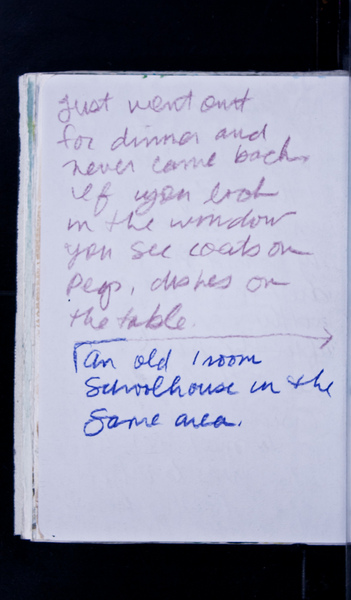 Just went out
for dinner and
never came back.
If you look
in the window
you see coats on
pegs, dishes on
the table.
An old 1 room
Schoolhouse in the
Same area.